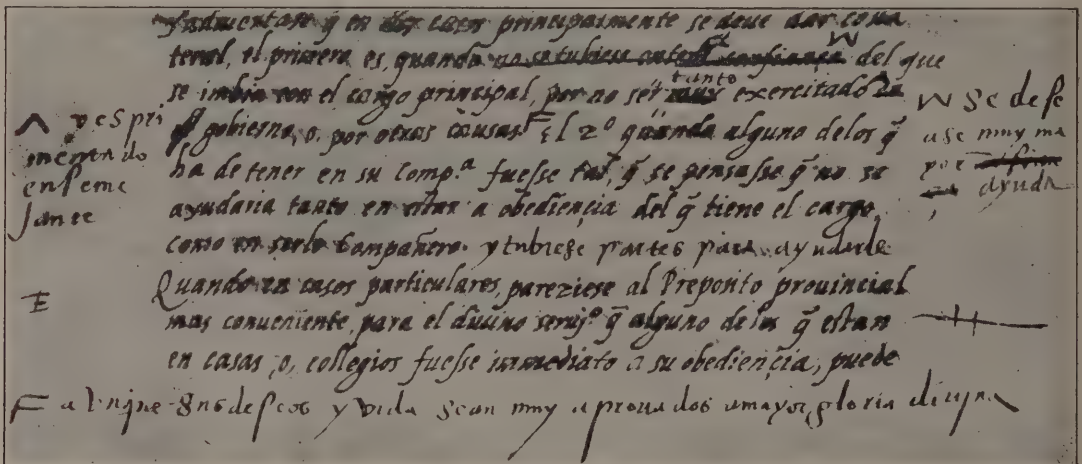 fundamentase q̃ en dos casos principalmente se deue dar cola
teral, el primero es, quando no se tubiese entera confiança del que
se imbia con el cargo principal, por no ser tanto muy exercitado en
gobierno, o, por otras causas. El 2º quando alguno delos q̃
ha de tener en su Comp.ª fuesse tal, q̃ se pensasse q̃ no se
ayudaria tanto en estar a obediençia del q̃ tiene el cargo,
como en serle Compañero. y tubiese partes para ayudarle
Quando en casos particulares, pareziese al Preposito prouincial
mas conueniente, para el diuino seruj.º q̃ alguno de los q̃ estan
en casas, o, collegios fuesse immediato a su obediençia, puede
^ y espri
mentado
en seme
jante
E
W se dese
ase muy ma
yor
ayuda
F a Vnque sus deseos y vida sean muy aprouados a mayor gloria diuina